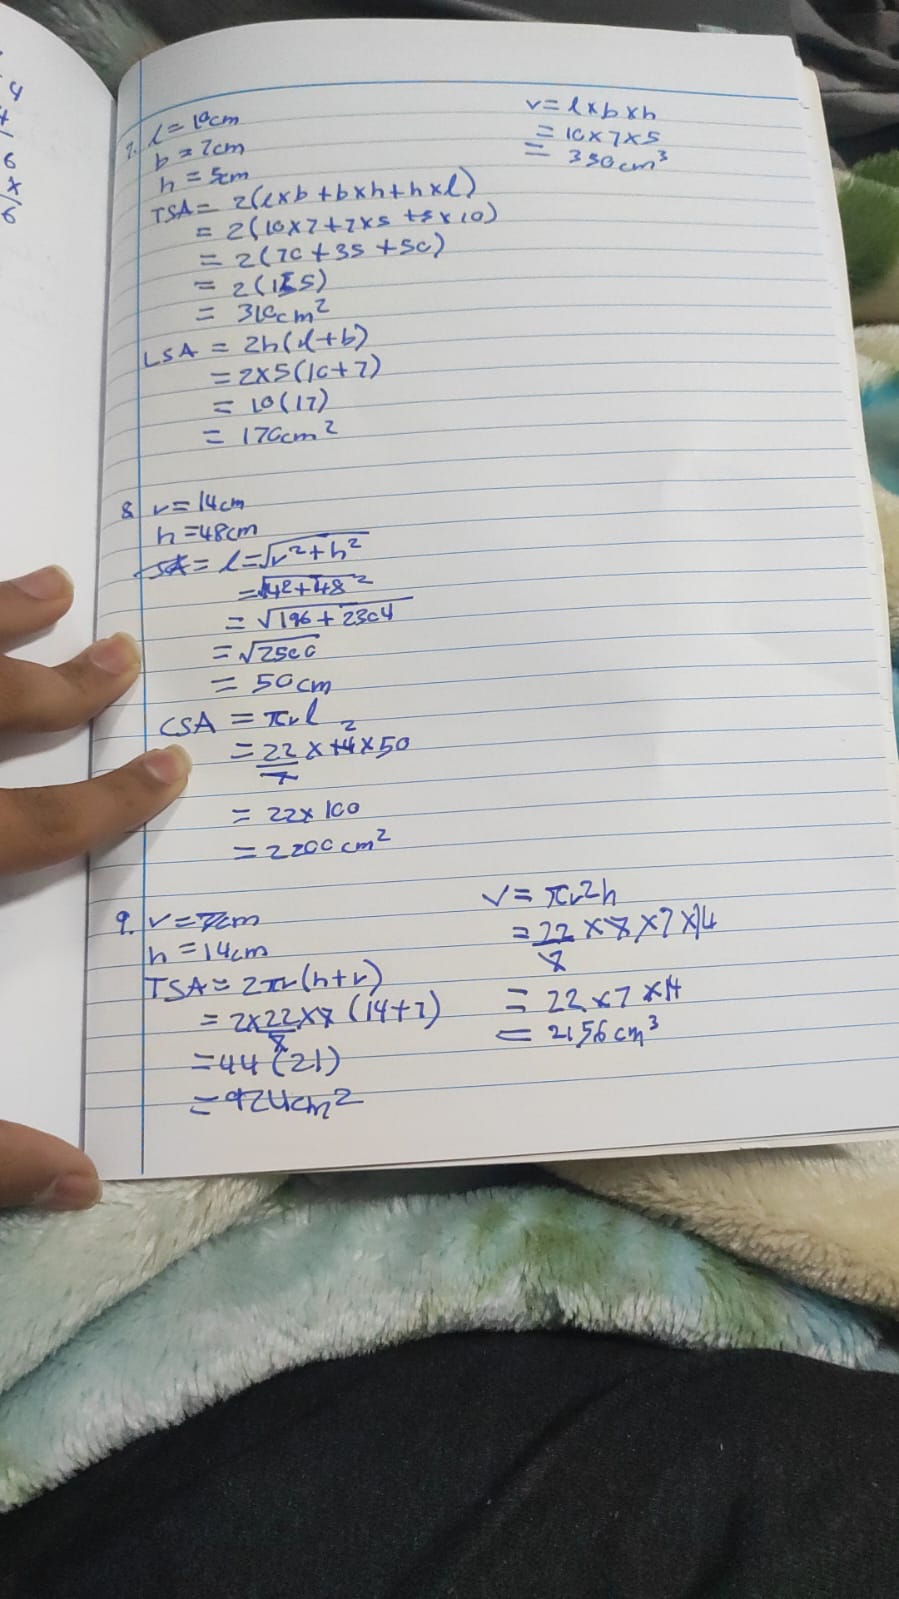 4
6
x
6
7. l = 10cm
b = 7cm
h = 5cm
TSA = 2(l×b + b×h + h×l)
= 2(10×7+7×5 +5×10)
= 2(70+35+50)
= 2(155)
= 310cm²
LSA = 2h(l+b)
= 2×5(10+7)
= 10(17)
= 170cm²
V = l×b×h
= 10×7×5
= 350cm³
8. r = 14cm
h = 48cm
SA = l = √r²+h²
= √14²+48²
= √196 + 2304
= √2500
= 50cm
CSA = πrl
= 22/7 × 14 2 × 50
= 22 × 100
= 2200cm²
9. r = 7cm
h = 14cm
TSA = 2πr(h+r)
= 2×22/7×7 (14+7)
= 44 (21)
= 924cm²
V = πr2h
= 22/7 ×7×7×14
= 22×7×14
= 2156cm³